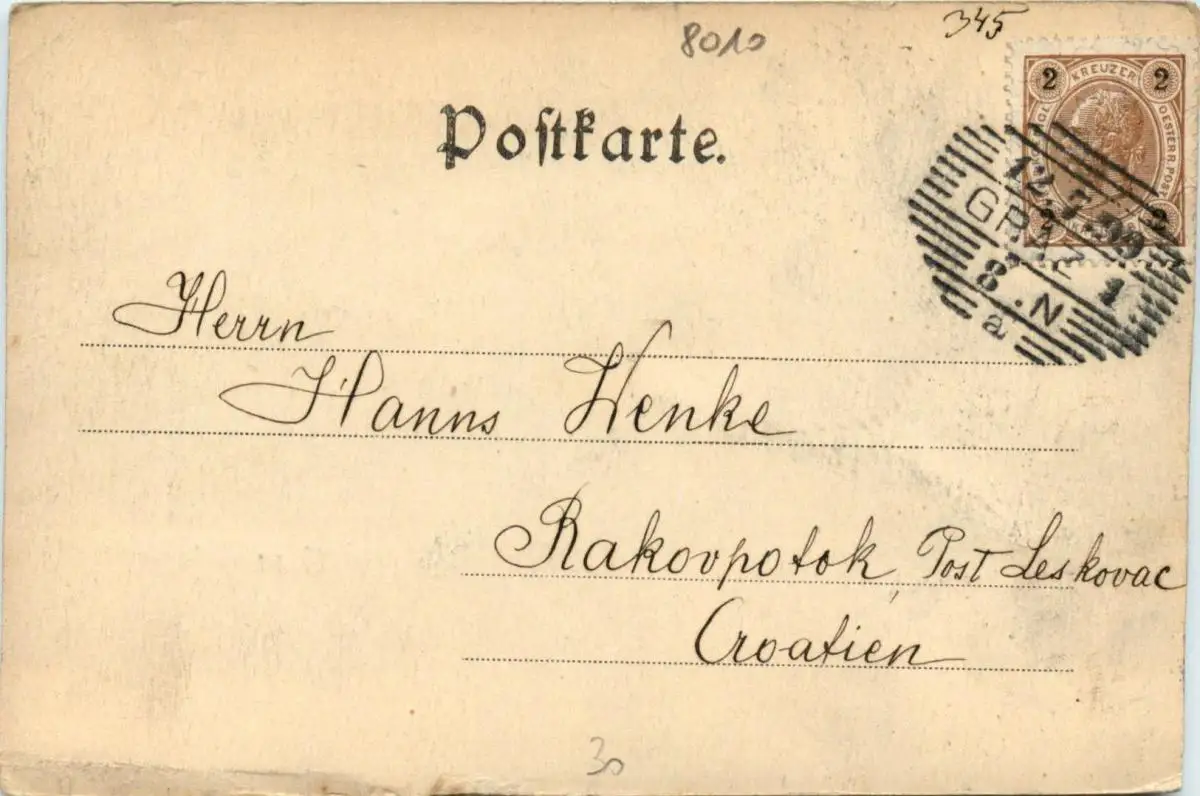 345
8010
2 KREUZER 2
OESTERR. POST
Postkarte.
12.7.99
GRAZ 1
8.N
a
2 2
Herrn
Hanns Wenke
Rakovpotok, Post Leskovac
Croatien
30